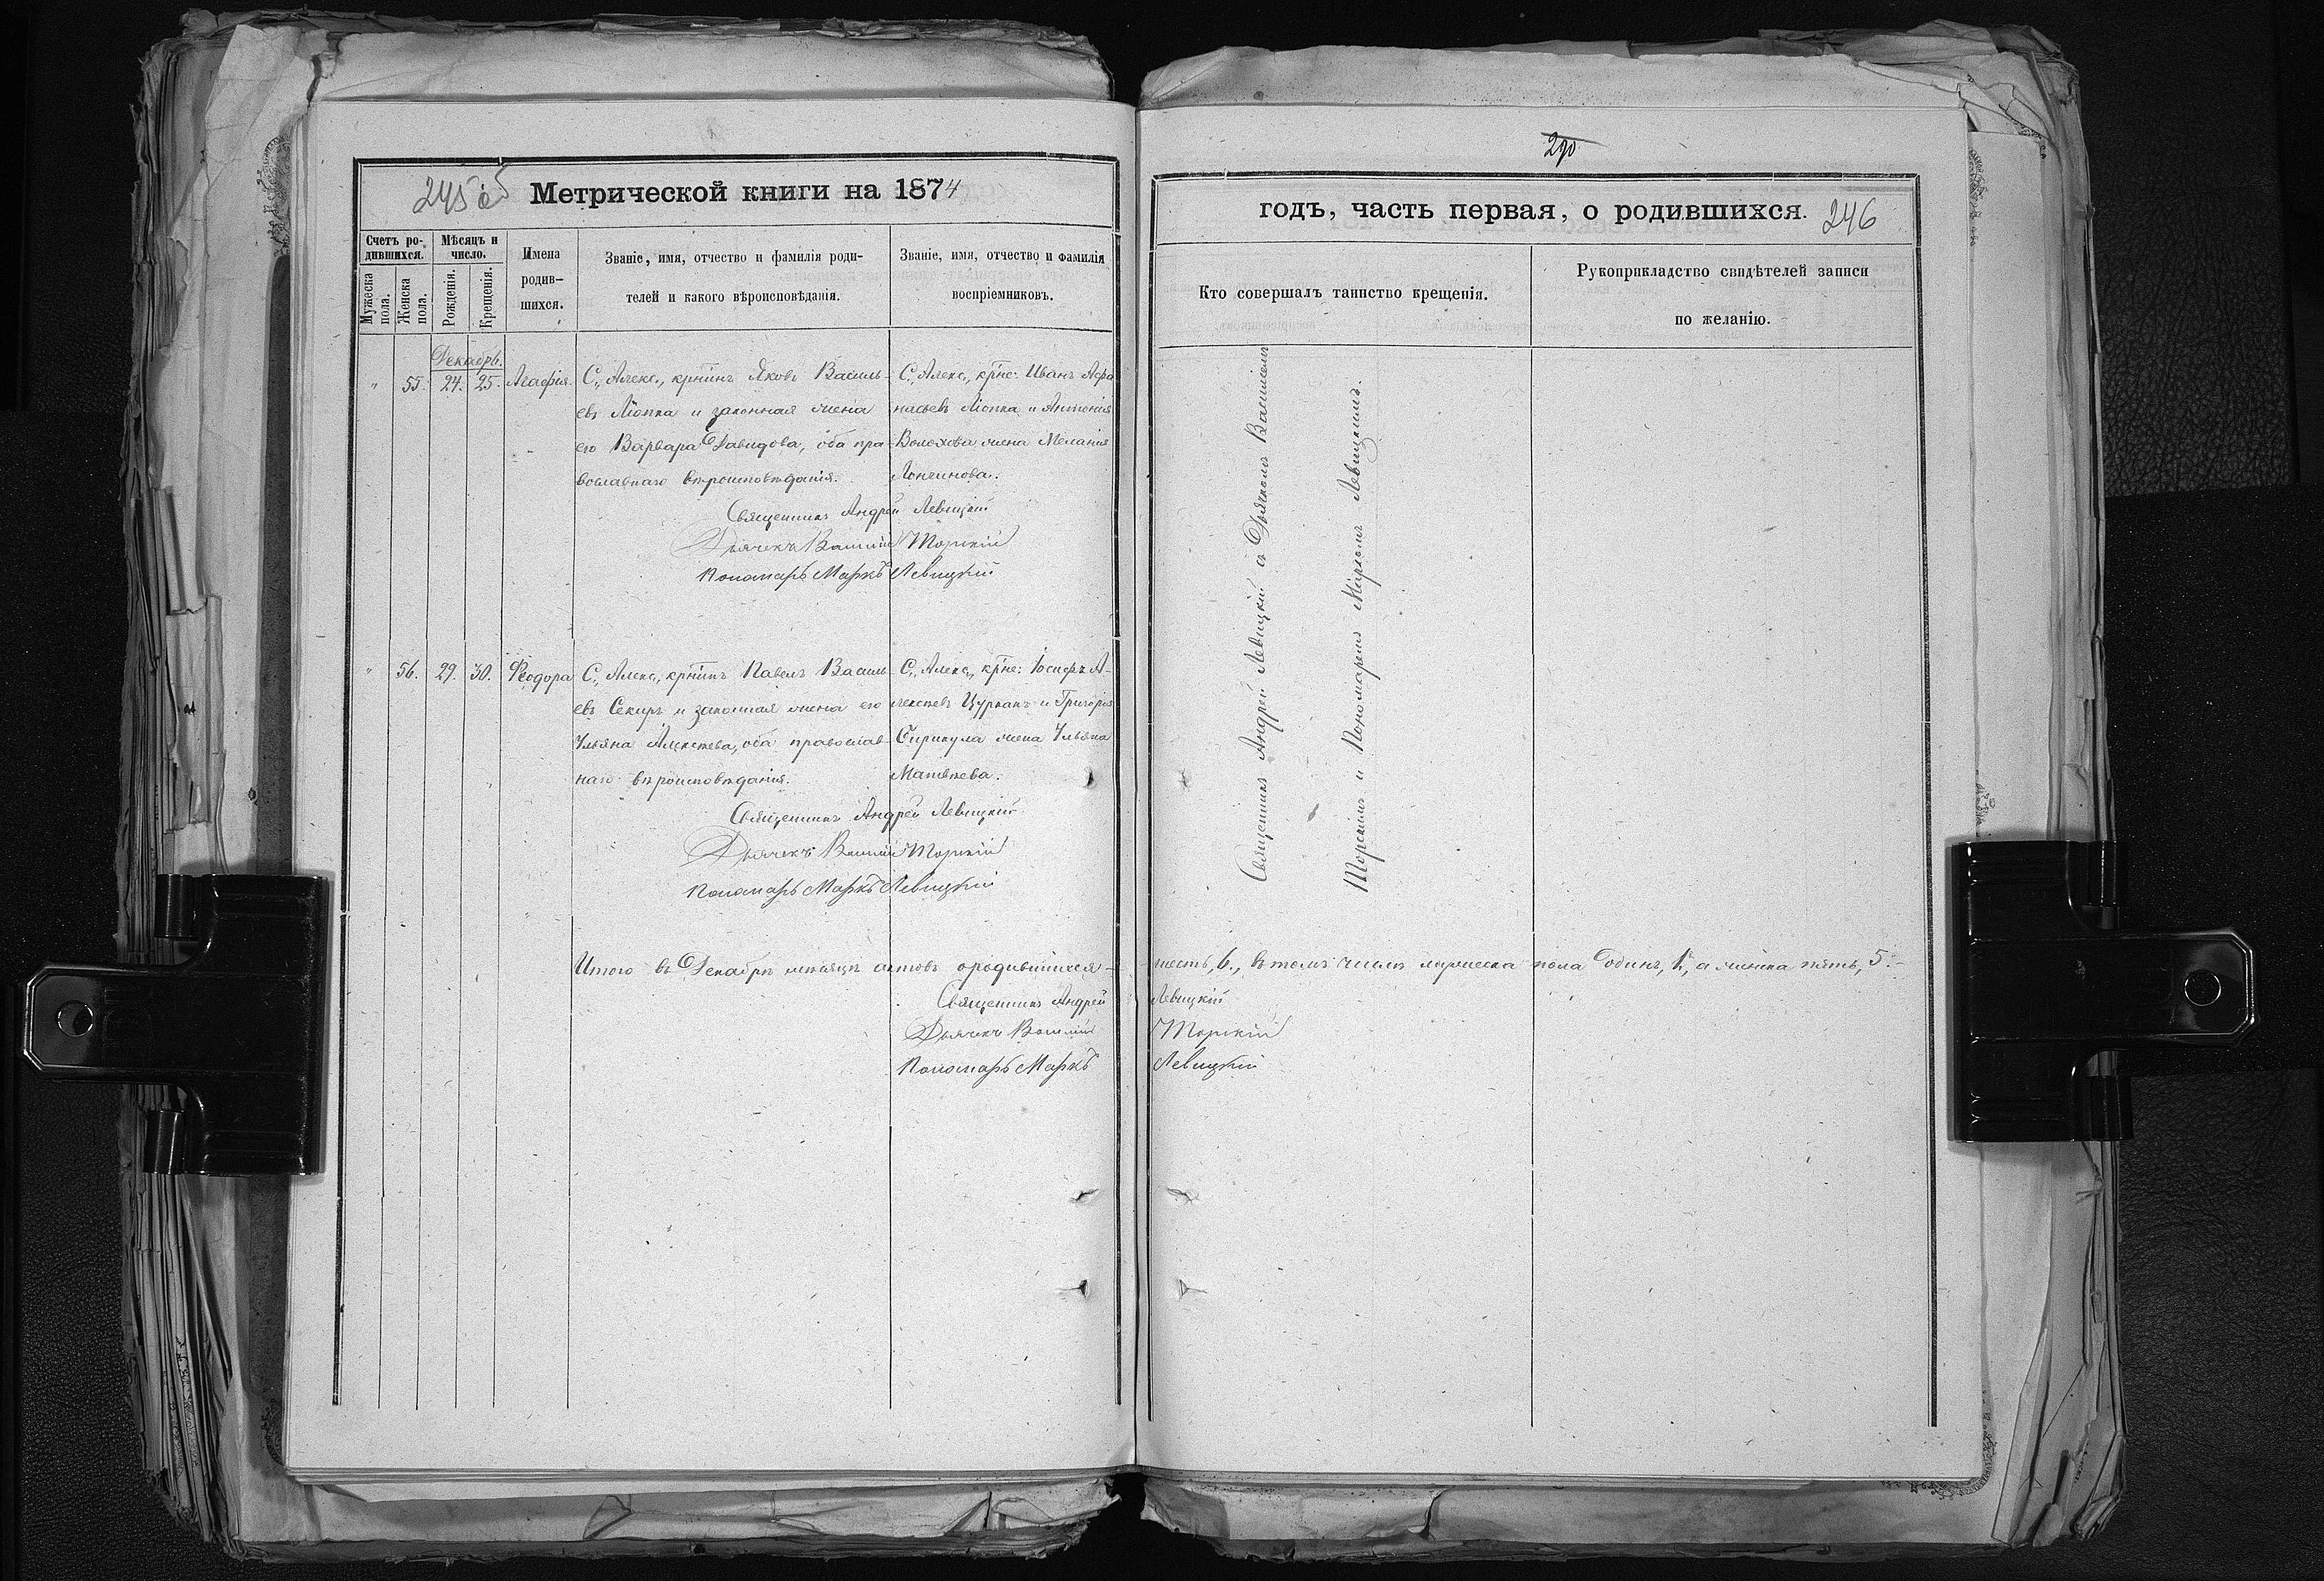 245 об
Метрической книги на 1874
Счетъ ро-
дившихся.
Мужеска пола.
Женска пола.
Мѣсяцъ и
число.
Рожденія.
Крещенія.
Имена
родив-
шихся.
Званіе, имя, отчество и фамилія роди-
телей и какого вѣроисповѣданія.
Званіе, имя, отчество и фамилія
воспріемниковъ.
Декабрь.
" 55. 24. 25. Агафія.
С., Алекс., крнинъ Яковъ Василь-
евъ Ліопка и законная жена
его Варвара Давидова, оба пра-
вославнаго вѣроисповѣданія.
С., Алекс., крне: Иванъ Афа
насьевъ Ліопка и Антонія
жена Меланія
Лончинова.
Священникъ Андрей Левицкій
Дьячекъ Василій Торскій
Пономарь Маркъ Левицкій
" 56. 29. 30. Феодора
С., Алекс., крнинъ Павелъ Василь-
евъ Секиръ и законная жена его
Ульяна Алексѣева, оба православ-
наго вѣроисповѣданія.
С., Алекс., крне: Іосифъ А-
лексѣевъ Цурканъ и Григорія
жена Ульяна
Матвѣева.
Священникъ Андрей Левицкій
Дьячекъ Василій Торскій
Пономарь Маркъ Левицкій
Итого въ Декабрѣ мѣсяцѣ актовъ ородившихся -
Священникъ Андрей
Дьячекъ Василій
Пономарь Маркъ
290
годъ, часть первая, о родившихся.
246
Кто совершалъ таинство крещенія.
Рукоприкладство свидѣтелей записи
по желанію.
Священникъ Андрей Левицкій съ Дьячкомъ Василіемъ
Торскимъ и Пономаремъ Маркомъ Левицкимъ.
- шесть, 6., въ томъ числѣ мужеска пола одинъ, 1., а женска пять, 5.-
Левицкій
Торскій
Левицкій